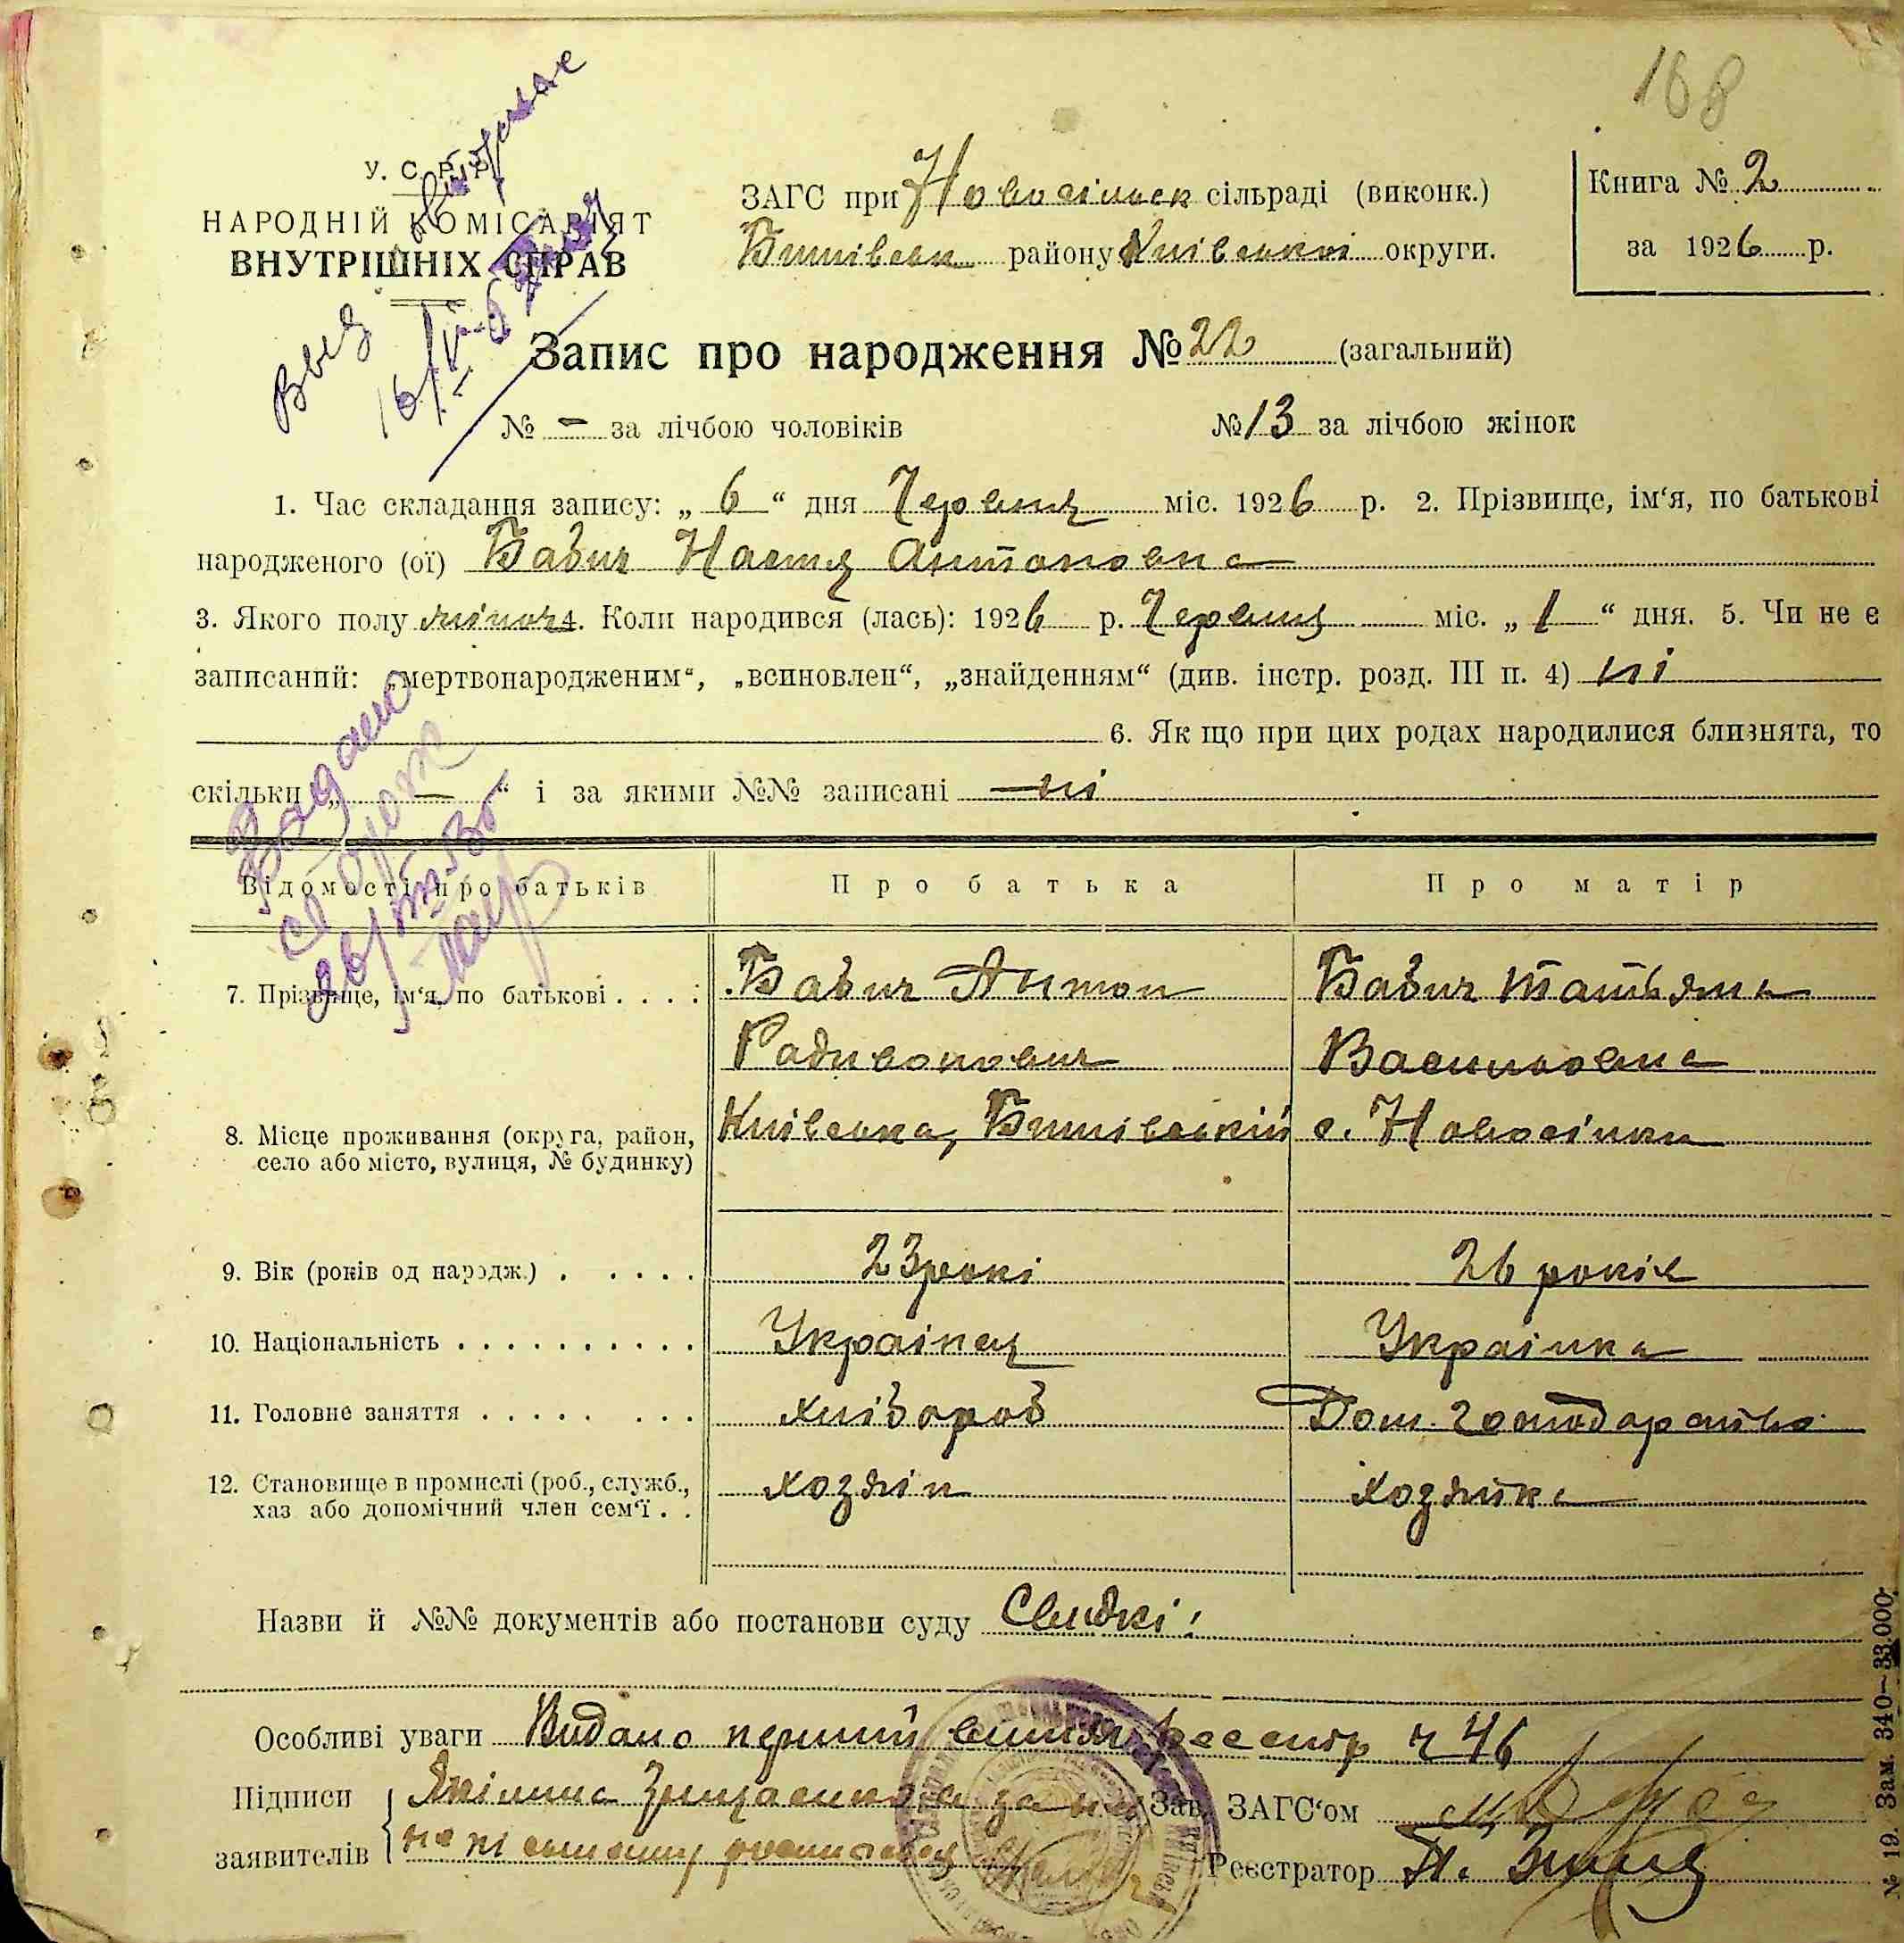 168
У. С. Р. Р.
НАРОДНІЙ КОМІСАРІЯТ
ВНУТРІШНІХ СПРАВ
ЗАГС при Новосільск сільраді (виконк.)
Бишівськ району Київської округи.
Книга № 2
за 1926 р.
Запис про народження № 22 (загальний)
№ – за лічбою чоловіків № 13 за лічбою жінок
1. Час складання запису: „ 6 “ дня Червня міс. 1926 р. 2. Прізвище, ім‘я, по батькові
народженого (ої) Бабич Настя Антоновна
3. Якого полу жіноч 4. Коли народився (лась): 1926 р. Червня міс. „ 1 “ дня. 5. Чи не є
записаний: „мертвонародженим“, „всиновлен“, „знайденням“ (див. інстр. розд. III п. 4) ні
6. Як що при цих родах народилися близнята, то
скільки „ — “ і за якими №№ записані — ні
Відомості про батьків Про батька Про матір
7. Прізвище, ім‘я, по батькові . . . . Бабич Антон Бабич Татьяна
Радивонович Васильовна
8. Місце проживання (округа, район, Київська, Бишівський с. Новосілки
село або місто, вулиця, № будинку)
9. Вік (років од народж.) . . . . . . 23 рокі 26 років
10. Національність . . . . . . . . . . Українец Українка
11. Головне заняття . . . . . . . . . хлібороб Дом. господарство
12. Становище в промислі (роб., служб., хозяін хозяйка
хаз або допомічний член сем‘ї . .
Назви й №№ документів або постанови суду Свидкі:
Особливі уваги Видано перший реєстр ч 46
Підписи
заявителів
Зав. ЗАГС‘ом
Реєстратор П.
№ 19. Зам. 340–33.000.